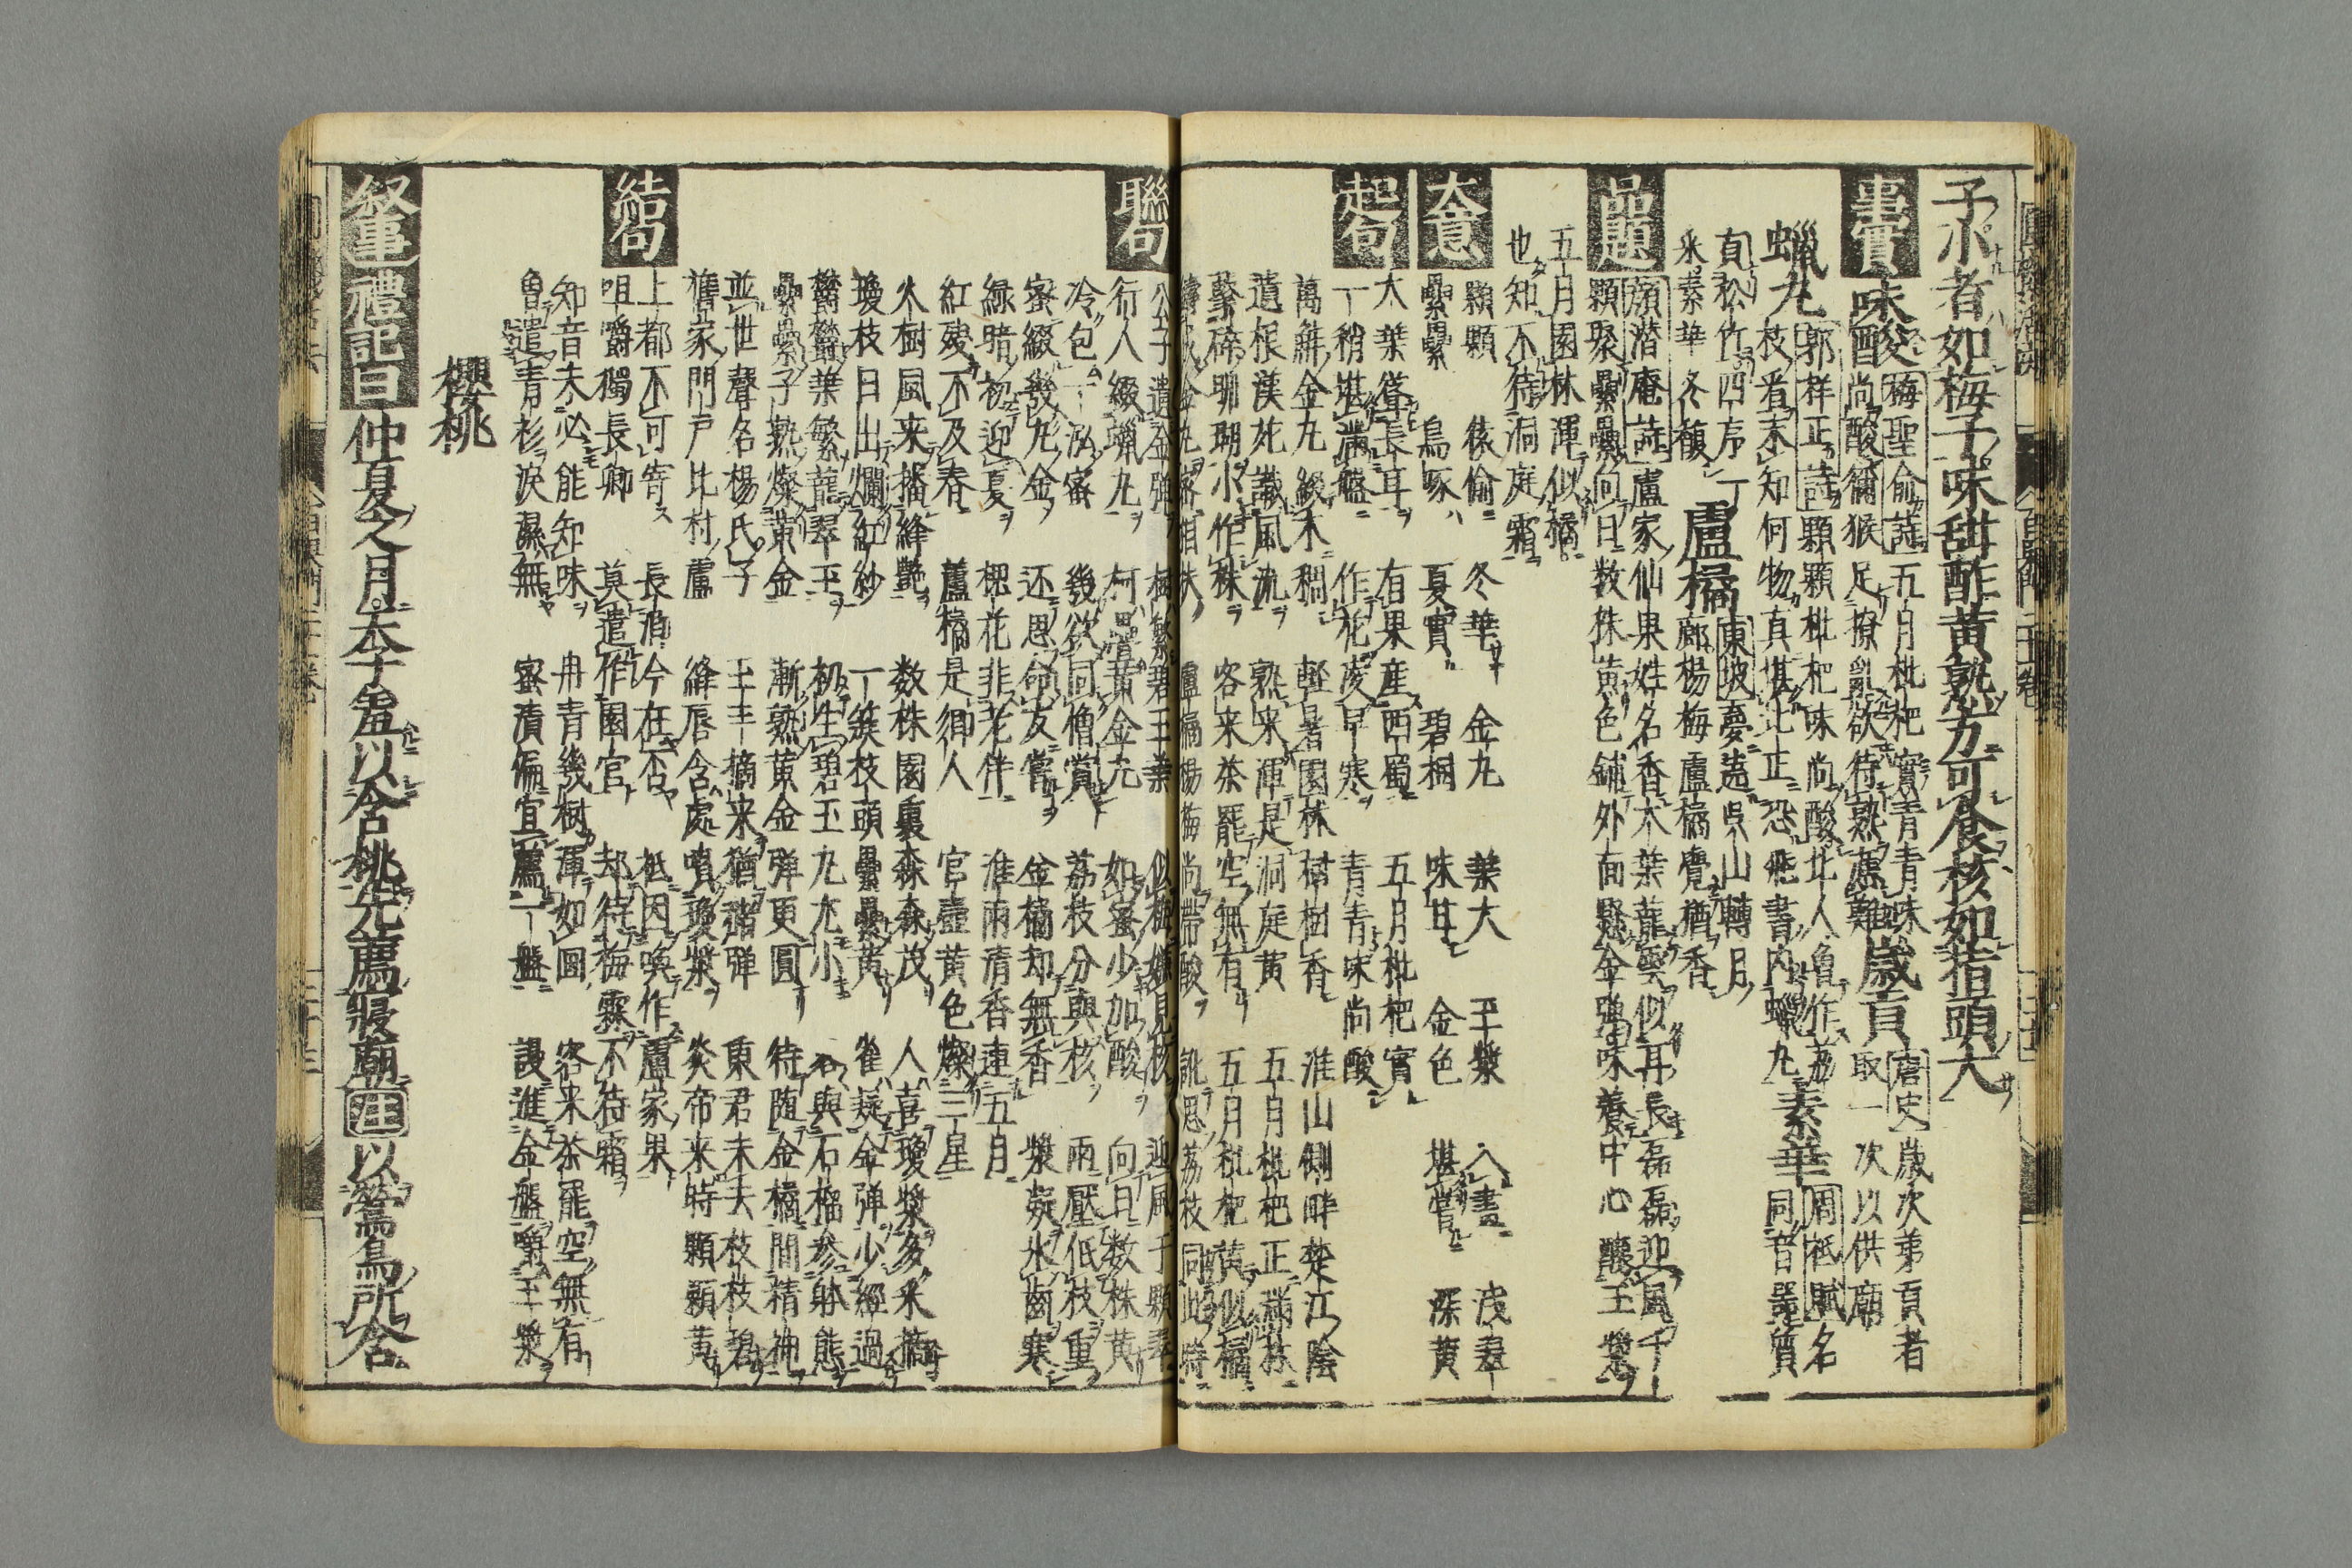 子小者如梅子味甜酢黄熟方可食核如指頭大
事實 味酸 梅聖俞詩五月枇杷實青青味
尚酸獼猴足撩亂欲待熟薦難 歲貢 唐史歲次第貢者
取一次以供廟
蠟丸 郭祥正詩顆顆枇杷味尚酸北人曾作荔
枝看未知何物真堪比正恐飛書内蠟丸 素華 周祗賦名
同音器質
貞松竹四序一
采素華冬馥 盧橘 東坡夢遶吳山轉月
廊楊梅盧橘覺猶香
品題 顏潜庵詩盧家仙果姓名香大葉蘢雲似耳長磊磊迎風千
顆聚纍纍向日数株黄色鋪外面懸金彈味養中心釀玉漿
五月園林渾似橘
也知不待洞庭霜
大意 顆顆 猿偷 冬華 金丸 葉大 玉漿 入畫 浅翠
纍纍 鳥啄 夏實 碧桐 味甘 金色 堪嘗 深黄
起句 大葉聳長耳 有果産西蜀 五月枇杷實
一稍堪滿盤 作花凌早寒 青青味尚酸
萬斛金丸綴木稠 輕暑園林樹樹香 淮山側畔楚江陰
遺根漢妣識風流 熟来渾是洞庭黄 五月枇杷正滿林
擊碎珊瑚小作株 客来茶罷空無有 五月枇杷黄似橘
金丸 盧橘楊梅尚帯酸 訛思荔枝同此時
聯句 公子遺金彈 樹繁碧玉葉 迎風千顆翠
行人綴蠟丸 柯疊黄金丸 如蜜少加酸 向日数株黄
冷包一泓蜜 幾欲同僧賞 荔枝分與核 雨壓低枝重
蜜綴幾丸金 还思命友嘗 金橘却無香 漿凝水齒寒
緑暗初迎夏 杷花非老伴 淮雨清香連五月
紅殘不及春 蘆橘是鄉人 官壺黄色燦三星
火樹風来播絳艷 数株園裏森森茂 人喜瓊漿多采摘
瓊枝日出爛紅紗 一簇枝頭纍纍黄 雀疑金彈少經過
欝欝葉繁蘢翠玉 初生碧玉丸尤小 石與石榴参躰態
纍纍子熟燦黄金 漸熟黄金弹更圓 待随金橘間精神
並世聲名楊氏子 玉手摘来猶諸弹 東君未去枝枝碧
舊家門戸比村盧 絳唇含處噴瓊漿 炎帝来時顆顆黄
結句 上都不可寄 長消今在否 祇因喚作盧家果
咀嚼獨長卿 莫遣作園官 却待梅霖不待霜
知音未必能知味 冉青幾樹渾如画 客来茶罷空無有
魯遣青衫淚濕無 蜜漬偏宜薦一盤 謾進金盤嚼玉漿
櫻桃
叙事 禮記曰 仲夏之月天子羞以含桃先薦寢廟 注 以鶯鳥所含